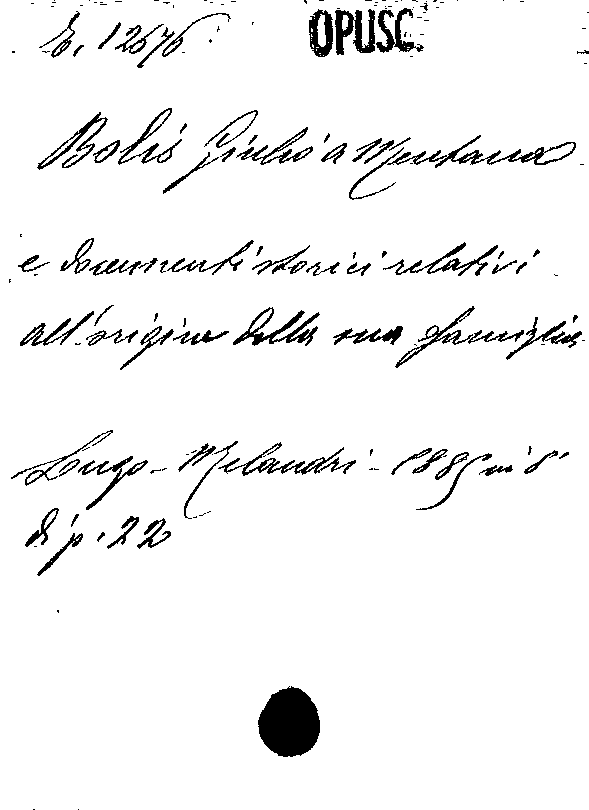 E. 12676 OPUSC.
Bolis Giulio a Mentana
e documenti storici relativi
all'origine della sua famiglia
Lugo - Melandri - 1885 in 8°
di p. 22